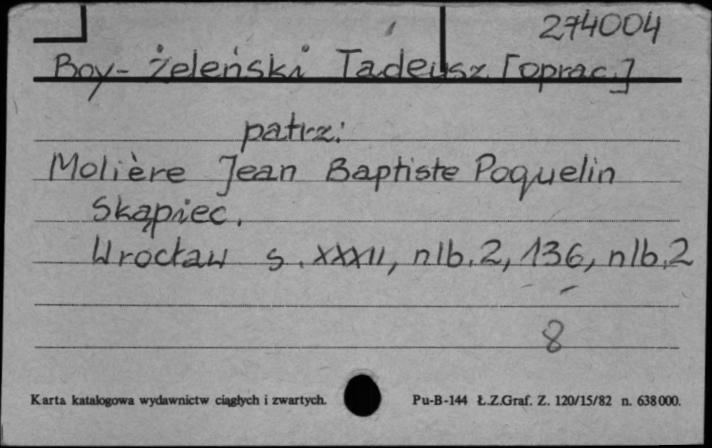 274004
Boy-Żeleński Tadeusz [oprac.]
patrz:
Molière Jean Baptiste Poquelin
Skąpiec.
Wrocław s. XXXII, nlb. 2, 136, nlb. 2
8
Karta katalogowa wydawnictw ciągłych i zwartych. Pu-B-144 Ł.Z.Graf. Z. 120/15/82 n. 638000.